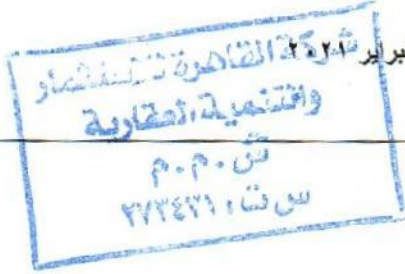 براير ٢٠٢١
شركة القاهرة للاستثمار
والتنمية العقارية
ش.م.م
س ت : ٢٧٣٤٣١